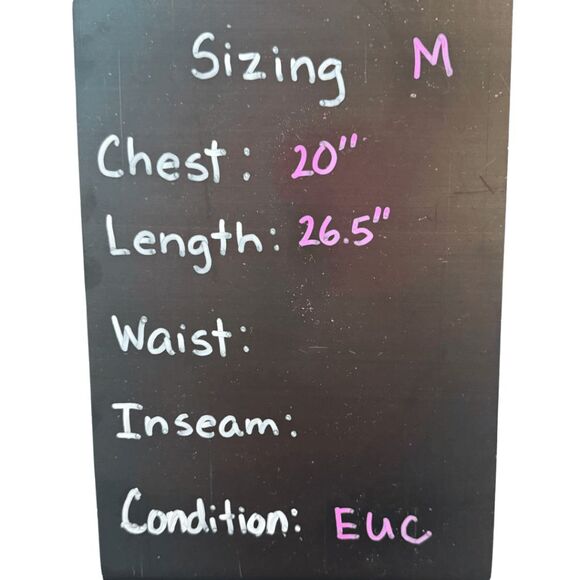 Sizing M
Chest: 20"
Length: 26.5"
Waist:
Inseam:
Condition: EUC